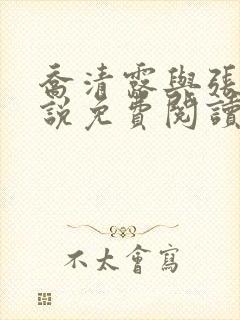 喬清露與張
說免費閱讀
不太會寫